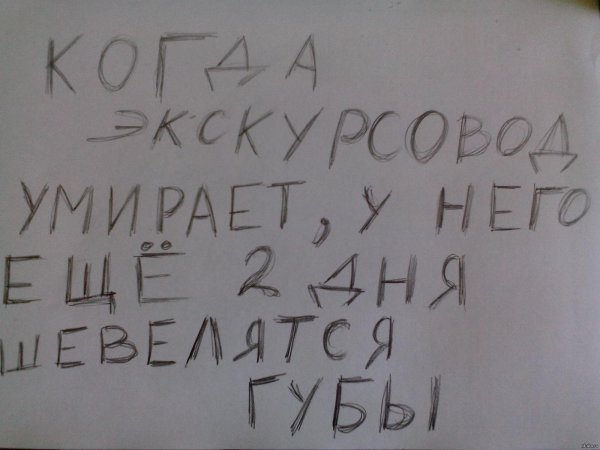 КОГДА
ЭКСКУРСОВОД
УМИРАЕТ, У НЕГО
ЕЩЁ 2 ДНЯ
ШЕВЕЛЯТСЯ
ГУБЫ